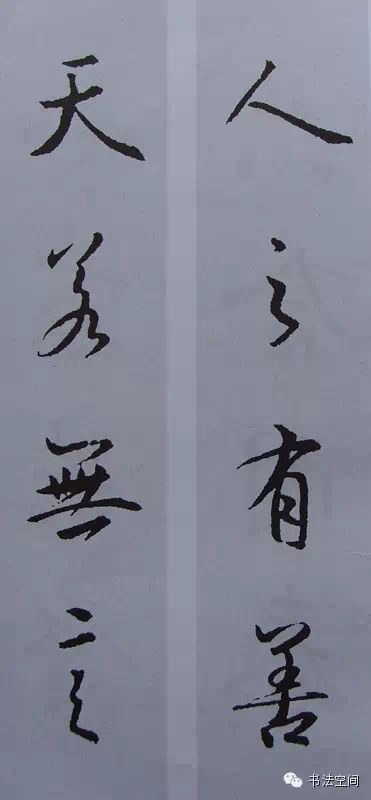 人之有善
天若無言
书法空间